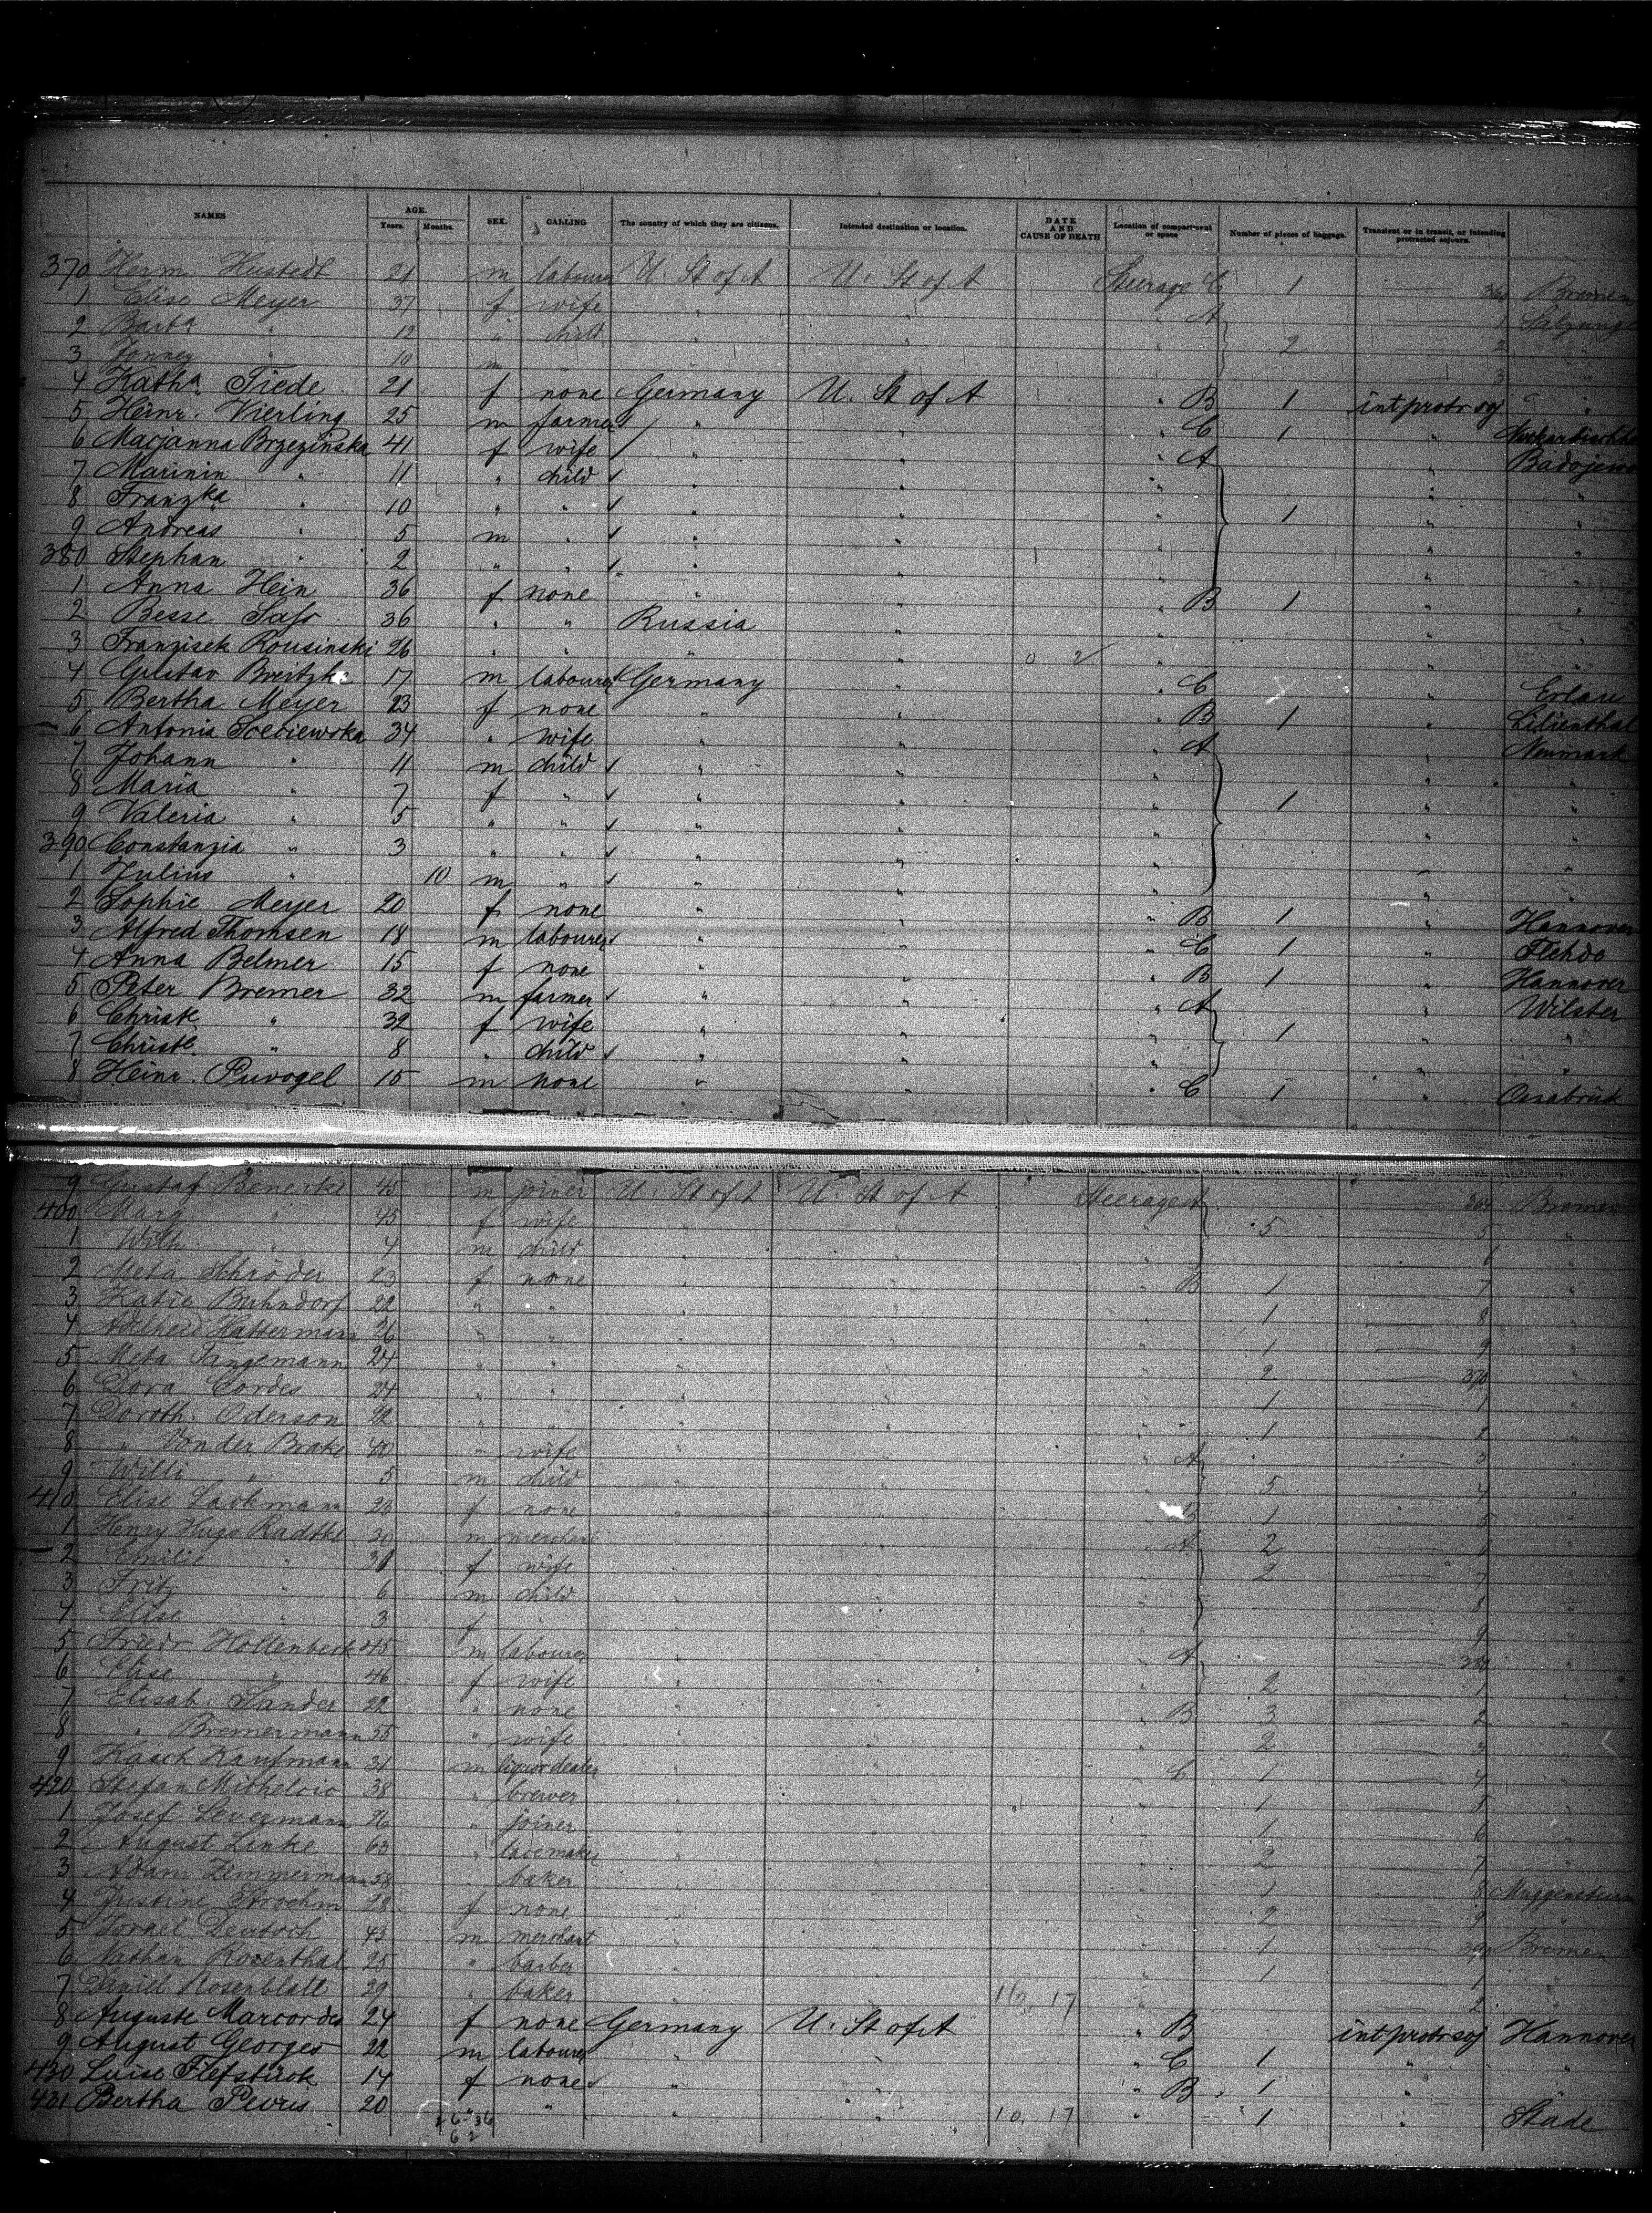 NAMES AGE. Years. Months. SEX. CALLING The country of which they are citizens. Intended destination or location. DATE AND CAUSE OF DEATH Location of compartment or space Number of pieces of baggage. Transient or in transit, or intending protracted sojourn.
370 Herm. Hustedt 21 m labourer U. St of A U. St of A Steerage C 1 360 Bremen
1 Elise Meyer 37 f wife " " " A 1
2 Barba " 12 " child " " " 2 2 "
3 Jonney " 10 m 3 "
4 Katha. Tiede 21 f none Germany U. St of A " B 1 int protr soj "
5 Heinr. Vierling 25 m farmer " " " C 1 "
6 Marjanna Brzezinska 41 f wife " " " A " Badojewo
7 Marinin " 11 " child " " " " "
8 Franzka " 10 " " " " " 1 " "
9 Andreas " 5 m " " " " " "
380 Stephan " 2 " " " " " " "
1 Anna Hein 36 f none " " " B 1 " "
2 Besse Safs 36 " " Russia " " " "
3 Franzisek Rousinski 26 " " " " " " "
4 Gustav Breitzke 17 m labourer Germany " " C " Erlau
5 Bertha Meyer 23 f none " " " B 1 " Lilienthal
6 Antonia Sceciewska 34 " wife " " " A " Neumark
7 Johann " 11 m child " " " " "
8 Maria " 7 f " " " " 1 " "
9 Valeria " 5 " " " " " " "
390 Constanzia " 3 " " " " " " "
1 Julius " 10 m " " " " " "
2 Sophie Meyer 20 f none " " " B 1 " Hannover
3 Alfred Thomsen 18 m labourer " " " C 1 " Flehde
4 Anna Belmer 15 f none " " " B 1 " Hannover
5 Peter Bremer 32 m farmer " " " A " Wilster
6 Christe " 32 f wife " " " 1 " "
7 Christe " 8 " child " " " " "
8 Heinr. Puvogel 15 m none " " " C 1 " Osnabrück
9 Gustaf Benecke 45 m joiner U. St of A U. St of A Steerage A 364 Bremen
400 Marg " 45 f wife " " " 5 5 "
1 Wilh " 4 m child " " " 6 "
2 Meta Schröder 23 f none " " " B 1 7 "
3 Katie Buhndorf 22 " " " " " 1 8 "
4 Adelheid Hattermann 26 " " " " " 1 9 "
5 Meta Tangemann 24 " " " " " 2 370 "
6 Dora Cordes 24 " " " " " 1 1 "
7 Doroth. Oderson 22 " " " " " 1 2 "
8 " Von der Brake 40 " wife " " " A 3 "
9 Willi " 5 m child " " " 5 4 "
410 Elise Lackmann 23 f none " " " B 1 5 "
1 Henry Hugo Radtke 30 m merchant " " " A 2 6 "
2 Emilie " 31 f wife " " " 2 7 "
3 Fritz " 6 m child " " " 8 "
4 Ellse " 3 f " " " " 9 "
5 Friedr Hollenbeck 45 m labourer " " " A 380 "
6 Elise " 46 f wife " " " 2 1 "
7 Elisab. Sander 22 " none " " " B 3 2 "
8 " Bremermann 55 " wife " " " 2 3 "
9 Kasch Kaufmann 31 m liquordealer " " " C 1 4 "
420 Stefan Mihelcic 38 " brewer " " " 1 5 "
1 Josef Levegmann 26 " joiner " " " 1 6 "
2 August Linke 63 " lacemaker " " " 2 7 "
3 Adam Zimmermann 58 " baker " " " 1 8 Muggensturm
4 Justine Stroehm 28 f none " " " 2 9 "
5 Jornel Deutsch 43 m merchant " " " 1 390 Bremen
6 Nathan Rosenthal 25 " barber " " " 1 1 "
7 Daniel Rosenblatt 29 " baker " " 10 17 " 2 "
8 Auguste Marcordes 24 f none Germany U. St of A " B int protr soj Hannover
9 August Georges 22 m labourer " " " C 1 " "
430 Luise Flefstück 14 f none " " " B 1 " "
431 Bertha Pevris 20 " " " " 10 17 " 1 " Stade